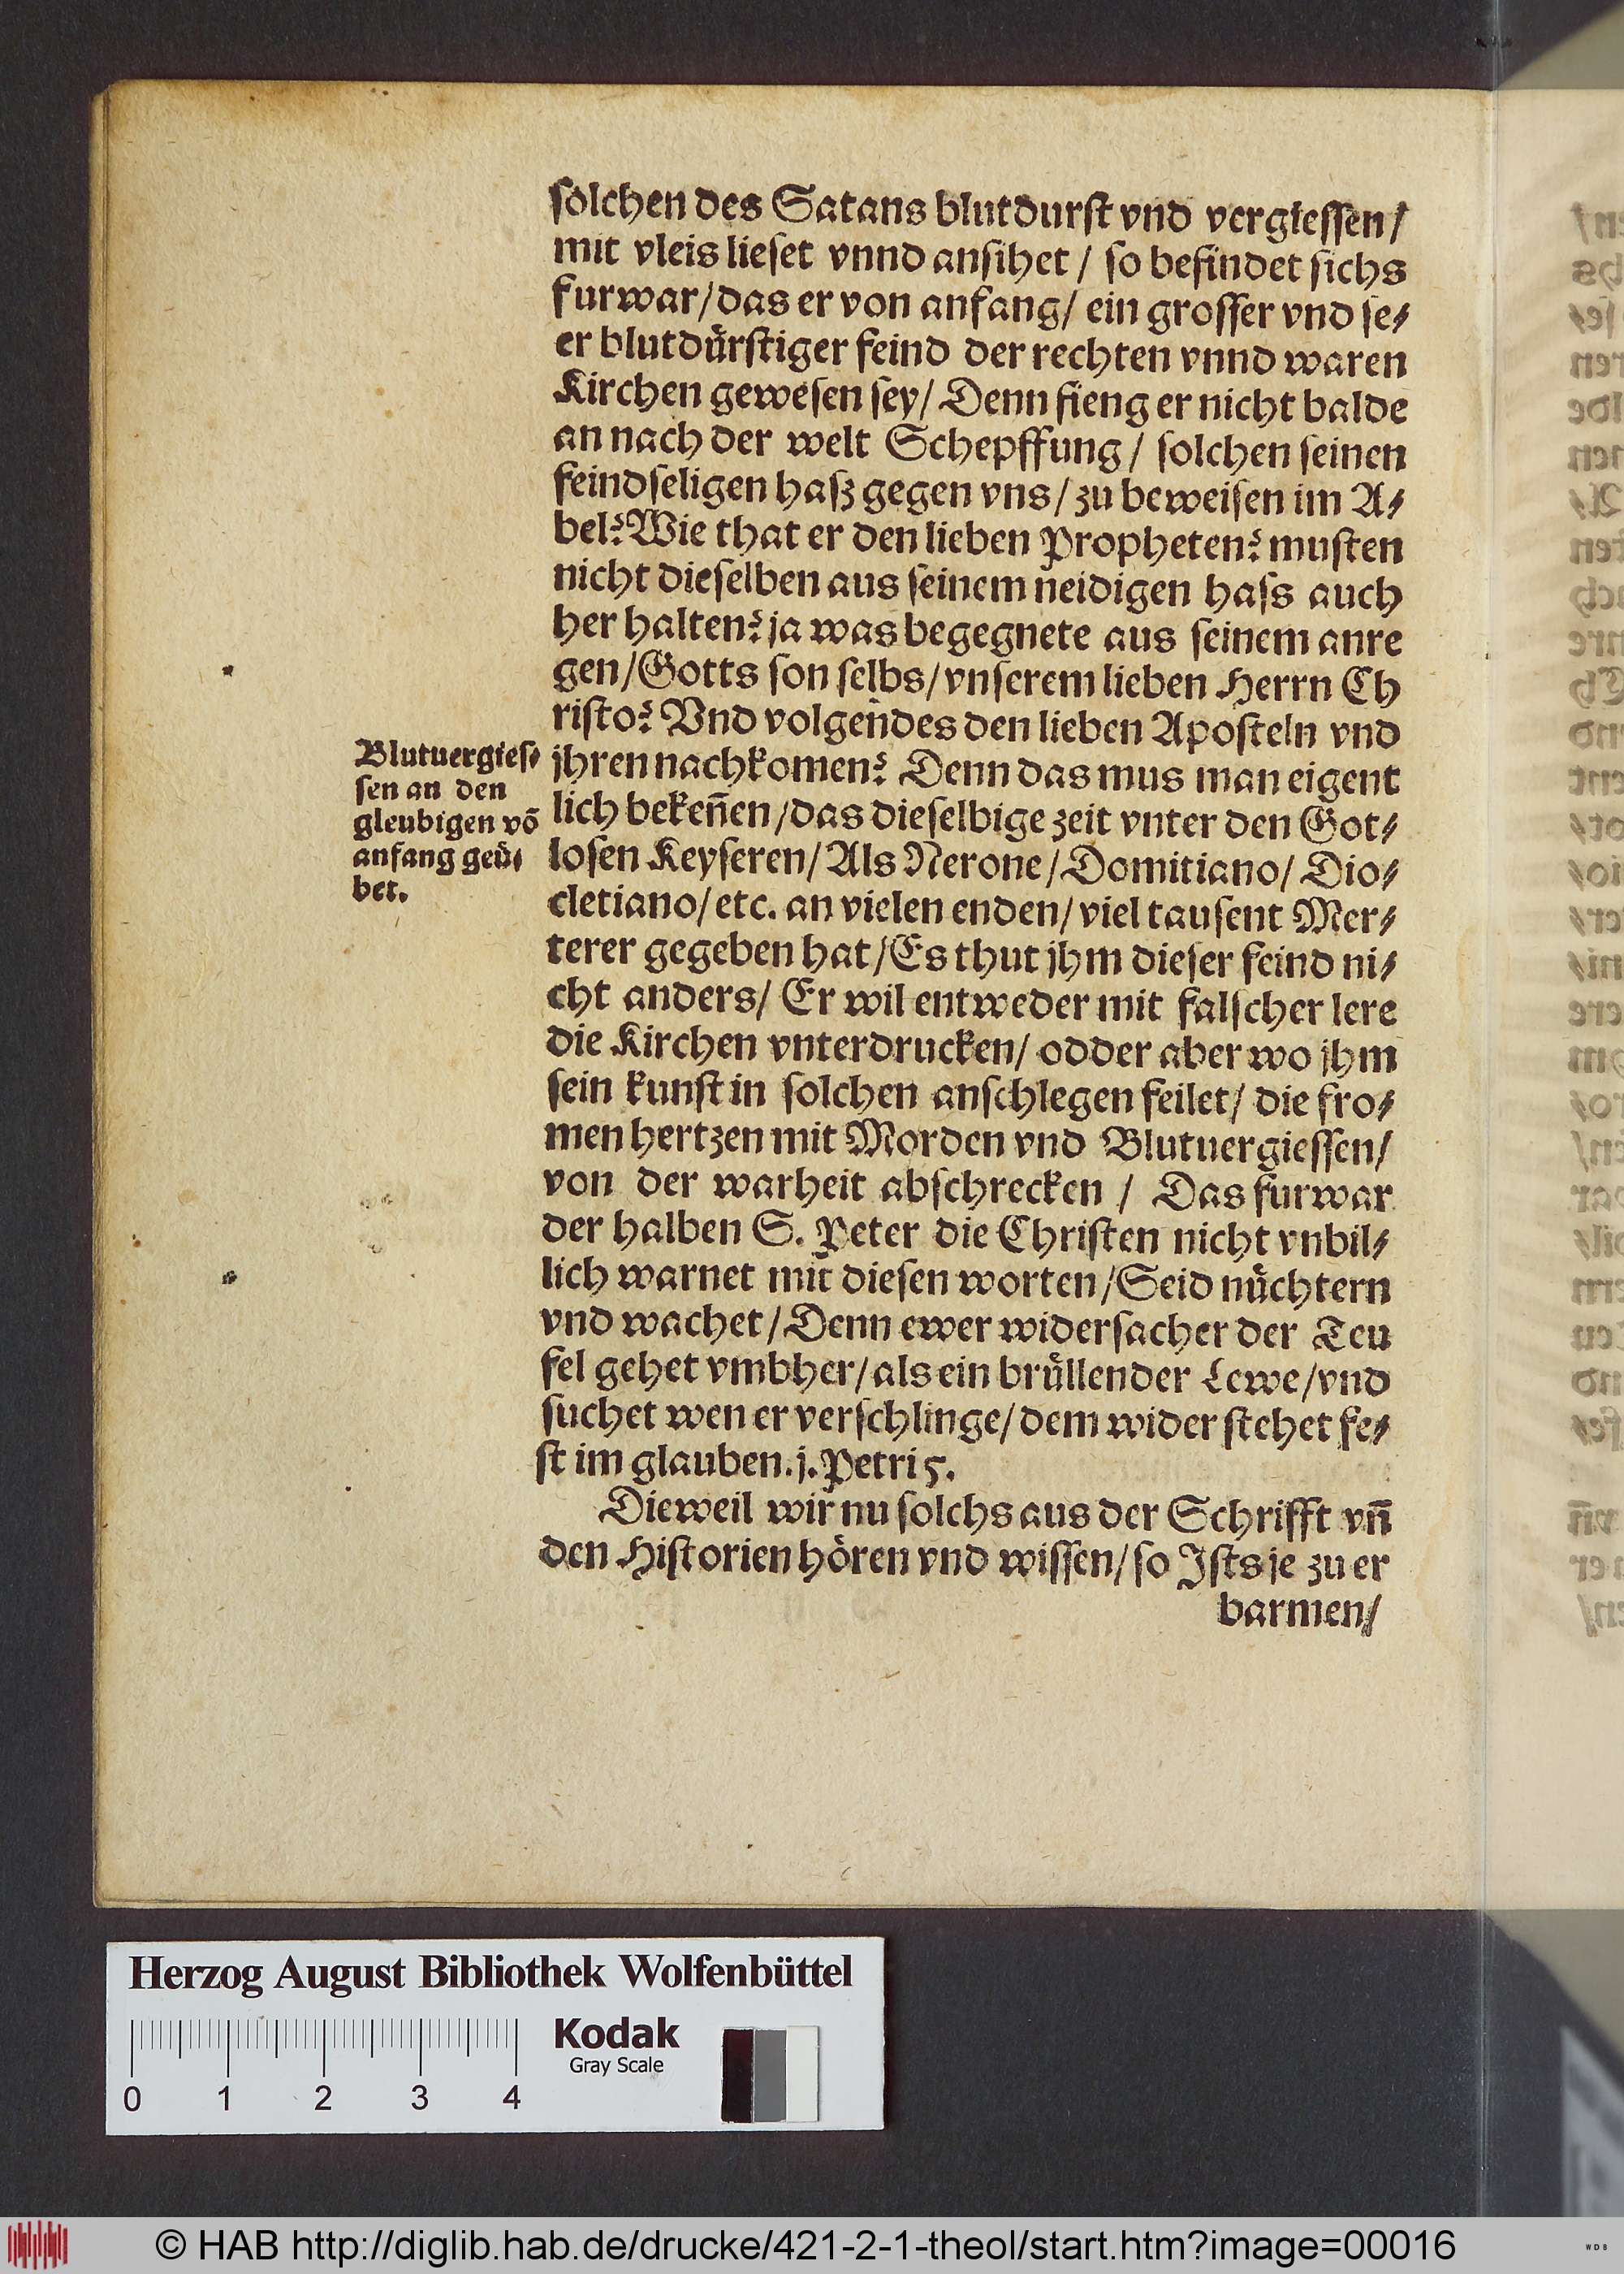 solchen des Satans blutdurst vnd vergiessen/
mit vleis lieset vnnd ansihet / so befindet sichs
furwar/das er von anfang/ ein grosser vnd se⸗
er blutdürstiger feind der rechten vnnd waren
Kirchen gewesen sey/ Denn fieng er nicht balde
an nach der welt Schepffung / solchen seinen
feindseligen hasz gegen vns/ zu beweisen im A⸗
bel? Wie that er den lieben Propheten? musten
nicht dieselben aus seinem neidigen hass auch
her halten? ja was begegnete aus seinem anre
gen/Gotts son selbs/vnserem lieben Herrn Ch
risto? Vnd volgendes den lieben Aposteln vnd
jhren nachkomen? Denn das mus man eigent
lich bekeñen/das dieselbige zeit vnter den Got⸗
losen Keyseren/ Als Nerone/Domitiano/ Dio⸗
cletiano/ etc. an vielen enden/ viel tausent Mer⸗
terer gegeben hat/Es thut jhm dieser feind ni⸗
cht anders/ Er wil entweder mit falscher lere
die Kirchen vnterdrucken/ odder aber wo jhm
sein kunst in solchen anschlegen feilet/ die fro⸗
men hertzen mit Morden vnd Blutuergiessen/
von der warheit abschrecken / Das furwar
der halben S. Peter die Christen nicht vnbil⸗
lich warnet mit diesen worten/Seid nüchtern
vnd wachet/Denn ewer widersacher der Teu
fel gehet vmbher/als ein brüllender Lewe/vnd
suchet wen er verschlinge/ dem wider stehet fe⸗
st im glauben. j. Petri 5.
Dieweil wir nu solchs aus der Schrifft vñ
den Historien hören vnd wissen/ so Ists je zu er
barmen/
Blutuergies⸗
sen an den
gleubigen võ
anfang geü⸗
bet.
Herzog August Bibliothek Wolfenbüttel
Kodak
Gray Scale
0 1 2 3 4
© HAB http://diglib.hab.de/drucke/421-2-1-theol/start.htm?image=00016
WDB